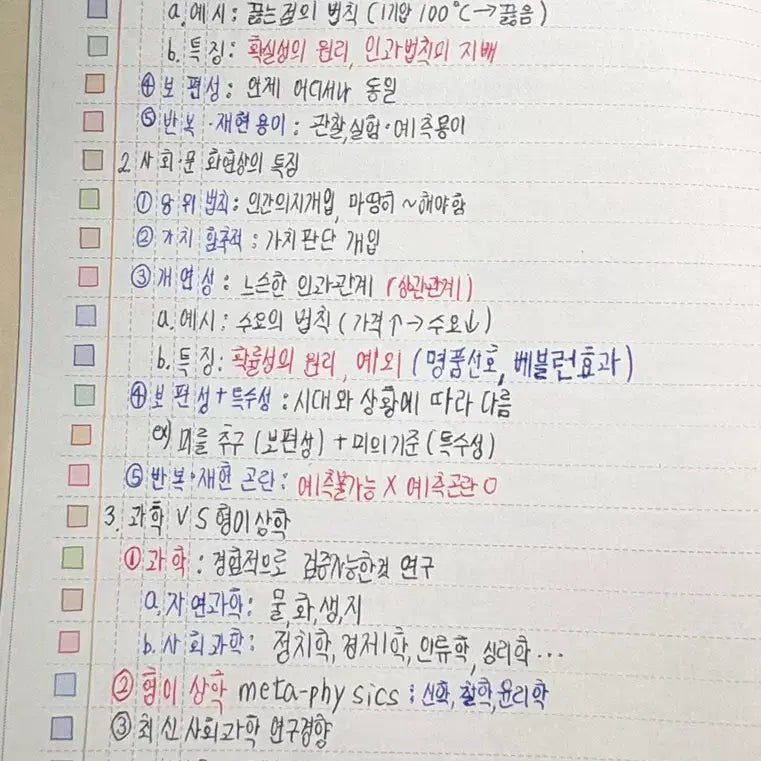 a. 예시: 끓는점의 법칙 (1기압 100℃→끓음)
b. 특징: 확실성의 원리, 인과법칙이 지배
④ 보편성: 언제 어디서나 동일
⑤ 반복·재현용이: 관찰,실험·예측용이
2. 사회·문화현상의 특징
① 당위법칙: 인간의지개입, 마땅히 ~해야함
② 가치 함축적: 가치판단 개입
③ 개연성: 느슨한 인과관계 (상관관계)
a. 예시: 수요의 법칙 (가격↑→수요↓)
b. 특징: 확률성의 원리, 예외 (명품선호, 베블런효과)
④ 보편성+특수성: 시대와 상황에 따라 다름
ex) 미를 추구 (보편성) + 미의기준 (특수성)
⑤ 반복·재현 곤란: 예측불가능 X 예측곤란 O
3. 과학 VS 형이상학
① 과학: 경험적으로 검증가능한것 연구
a. 자연과학: 물,화,생,지
b. 사회과학: 정치학,경제학,인류학,심리학…
② 형이상학 meta-physics: 신학,철학,윤리학
③ 최신사회과학 연구경향